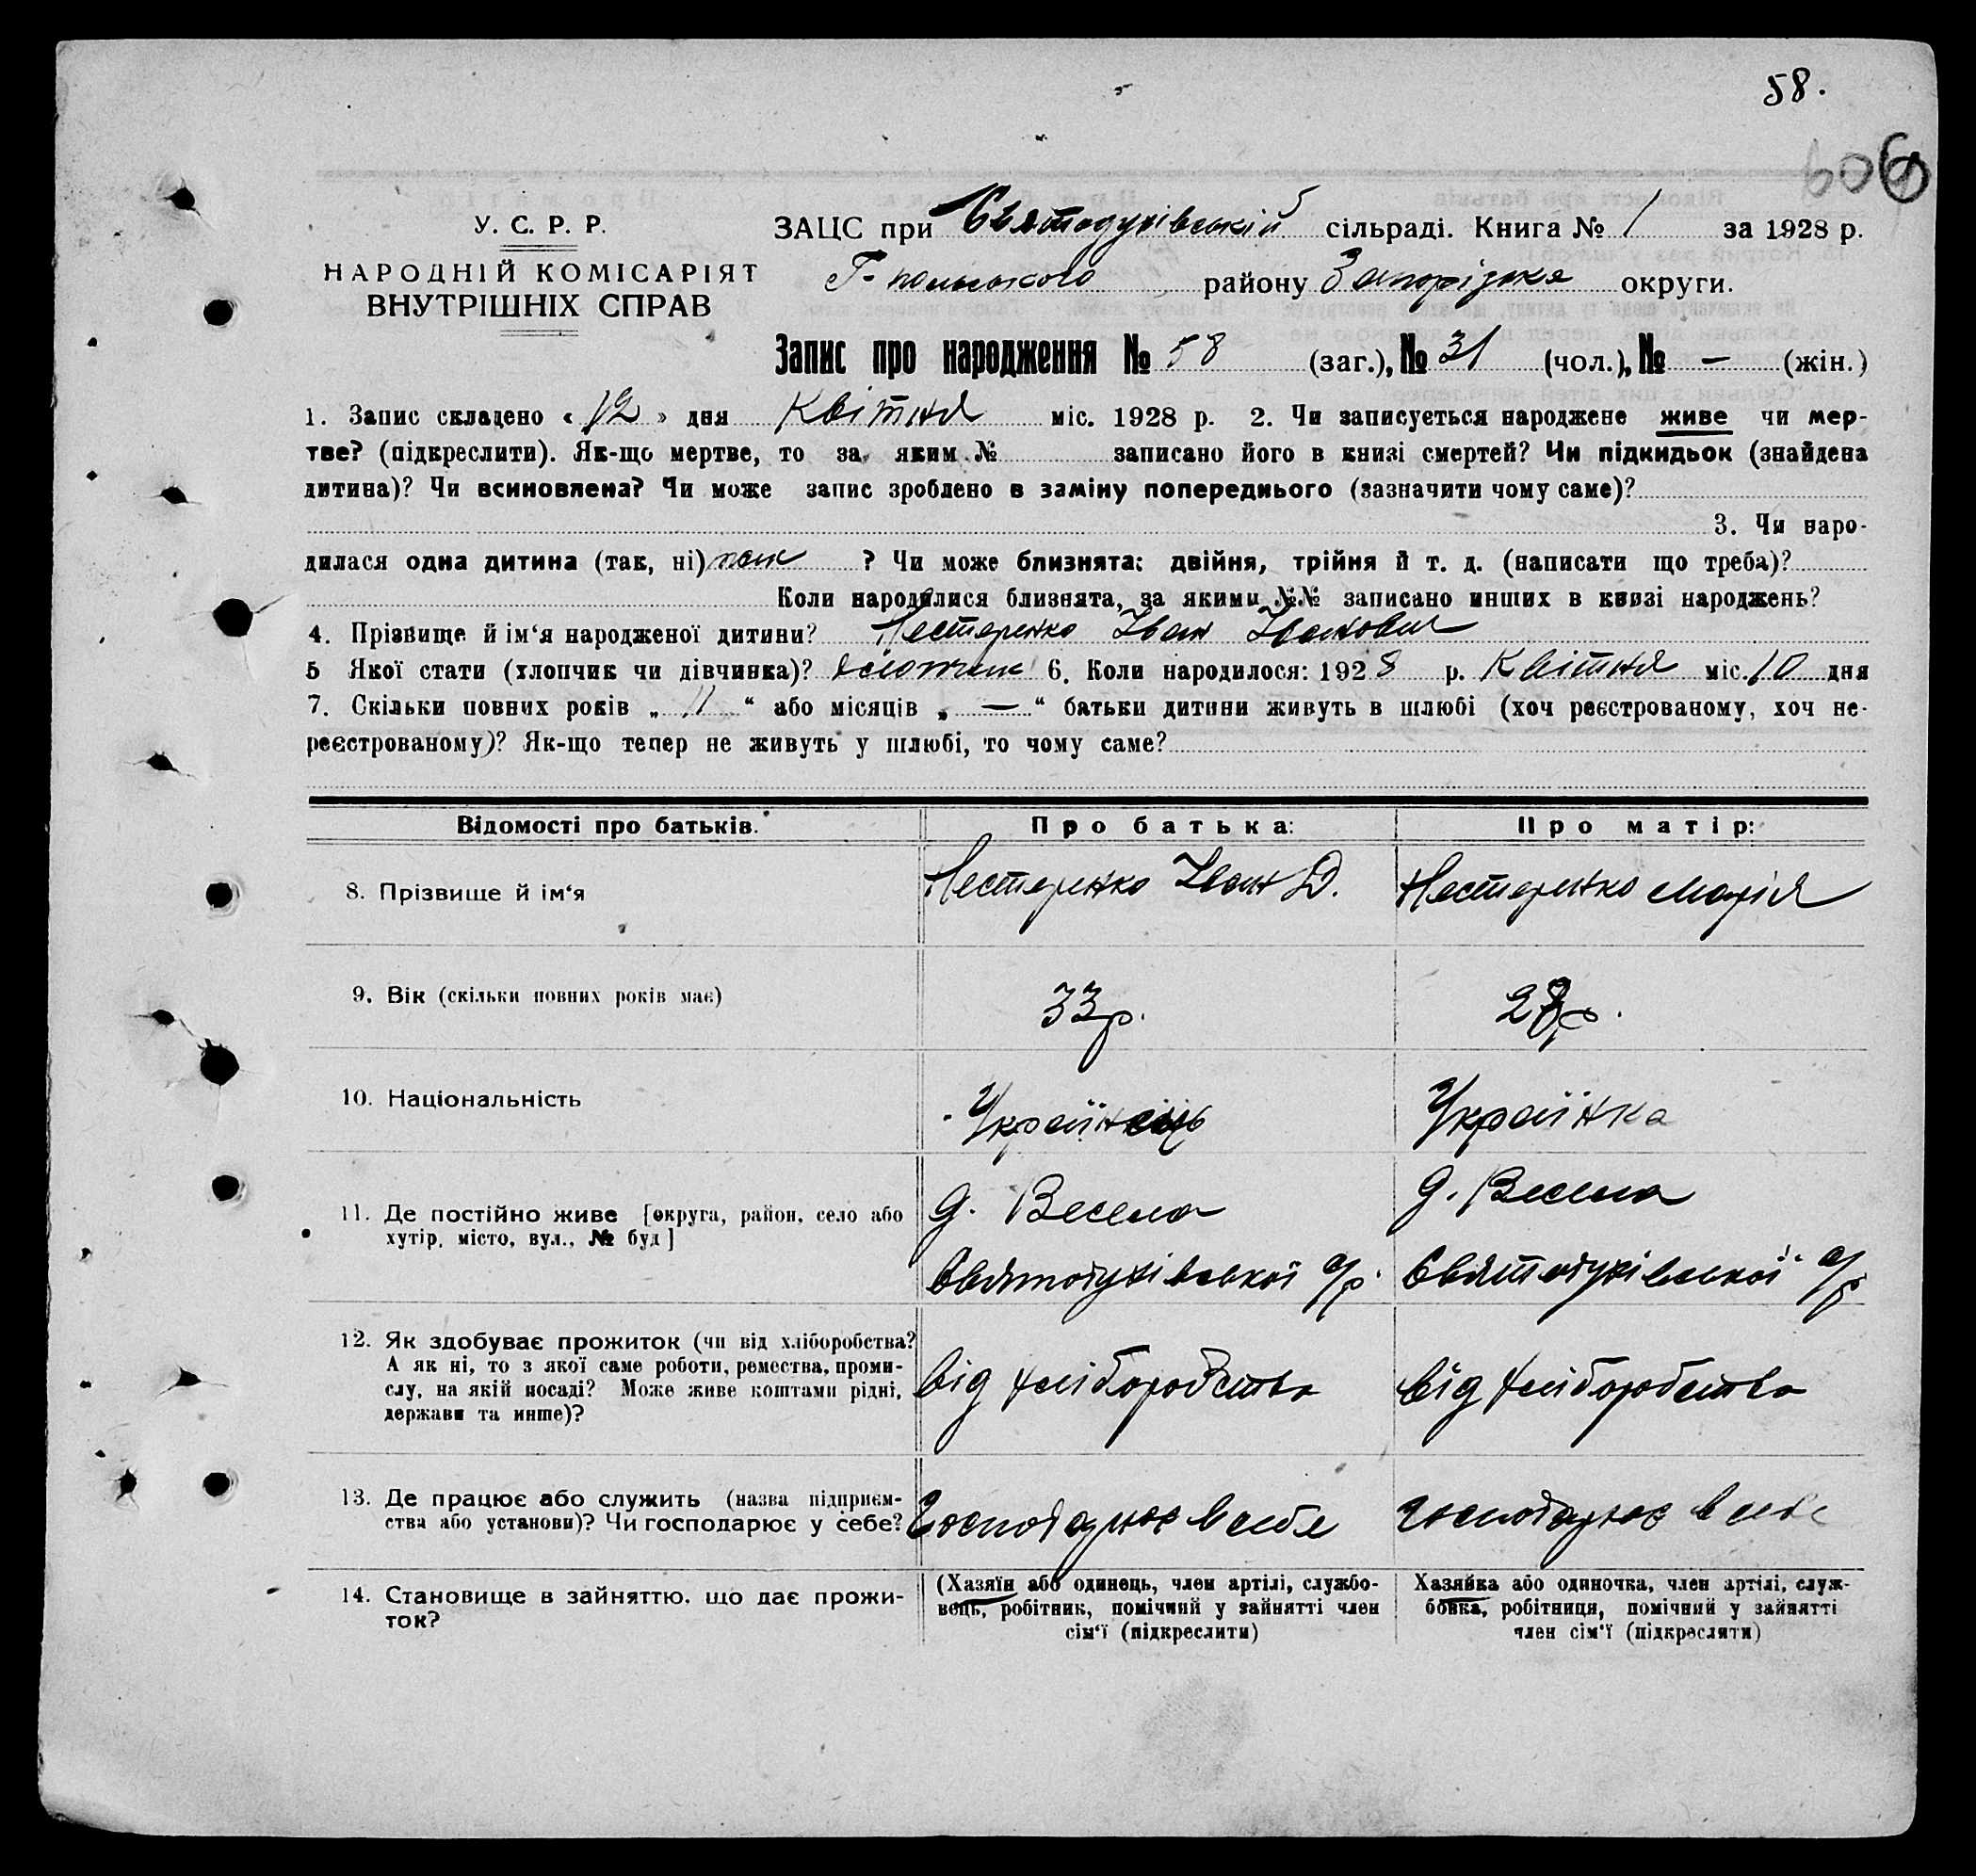 58.
606
У. С. Р. Р.
НАРОДНІЙ КОМІСАРІЯТ
ВНУТРІШНІХ СПРАВ
ЗАЦС при Святодухівській сільраді. Книга № 1 за 1928 р.
Г-польського району Запоріжжя округи.
Запис про народження № 58 (заг.), № 31 (чол.), № — (жін.)
1. Запис складено « 12 » дня Квітня міс. 1928 р. 2. Чи записується народжене живе чи мер-
тве? (підкреслити). Як-що мертве, то за яким № записано його в книзі смертей? Чи підкидьок (знайдена
дитина)? Чи всиновлена? Чи може запис зроблено в заміну попереднього (зазначити чому саме)?
3. Чи наро-
дилася одна дитина (так, ні) так ? Чи може близнята: двійня, трійня й т. д. (написати що треба)?
Коли народилися близнята, за якими №№ записано инших в книзі народжень?
4. Прізвище й ім‘я народженої дитини? Нестеренко Іван Іванович
5 Якої стати (хлопчик чи дівчинка)? хлопчик 6. Коли народилося: 1928 р. Квітня міс. 10 дня
7. Скільки повних років „ 11 “ або місяців „ — “ батьки дитини живуть в шлюбі (хоч реєстрованому, хоч не-
реєстрованому)? Як-що тепер не живуть у шлюбі, то чому саме?
Відомості про батьків. Про батька: Про матір:
8. Прізвище й ім‘я Нестеренко Іван Д. Нестеренко Марія
9. Вік (скільки повних років має) 33 р. 28 р.
10. Національність Українець Українка
11. Де постійно живе [округа, район, село або
хутір, місто, вул., № буд]
д. Весела д. Весела
Святодухівської с/р. Святодухівської с/р
12. Як здобуває прожиток (чи від хліборобства?
А як ні, то з якої саме роботи, ремества, проми-
слу, на якій посаді? Може живе коштами рідні,
держави та инше)?
від хліборобства від хліборобства
13. Де працює або служить (назва підприєм-
ства або установи)? Чи господарює у себе?
Господарює в себе господарює в себе
14. Становище в зайняттю, що дає прожи-
ток?
(Хазяїн або одинець, член артілі, службо-
вець, робітник, помічний у зайнятті член
сім‘ї (підкреслити)
Хазяйка або одиночка, член артілі, служ-
бовка, робітниця, помічний у зайнятті
член сім‘ї (підкреслити)